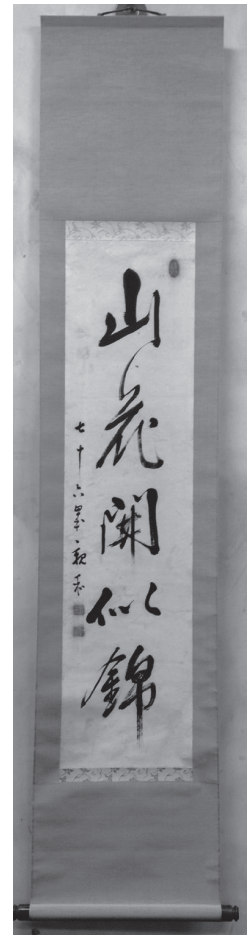 山花開似錦
七十六叟